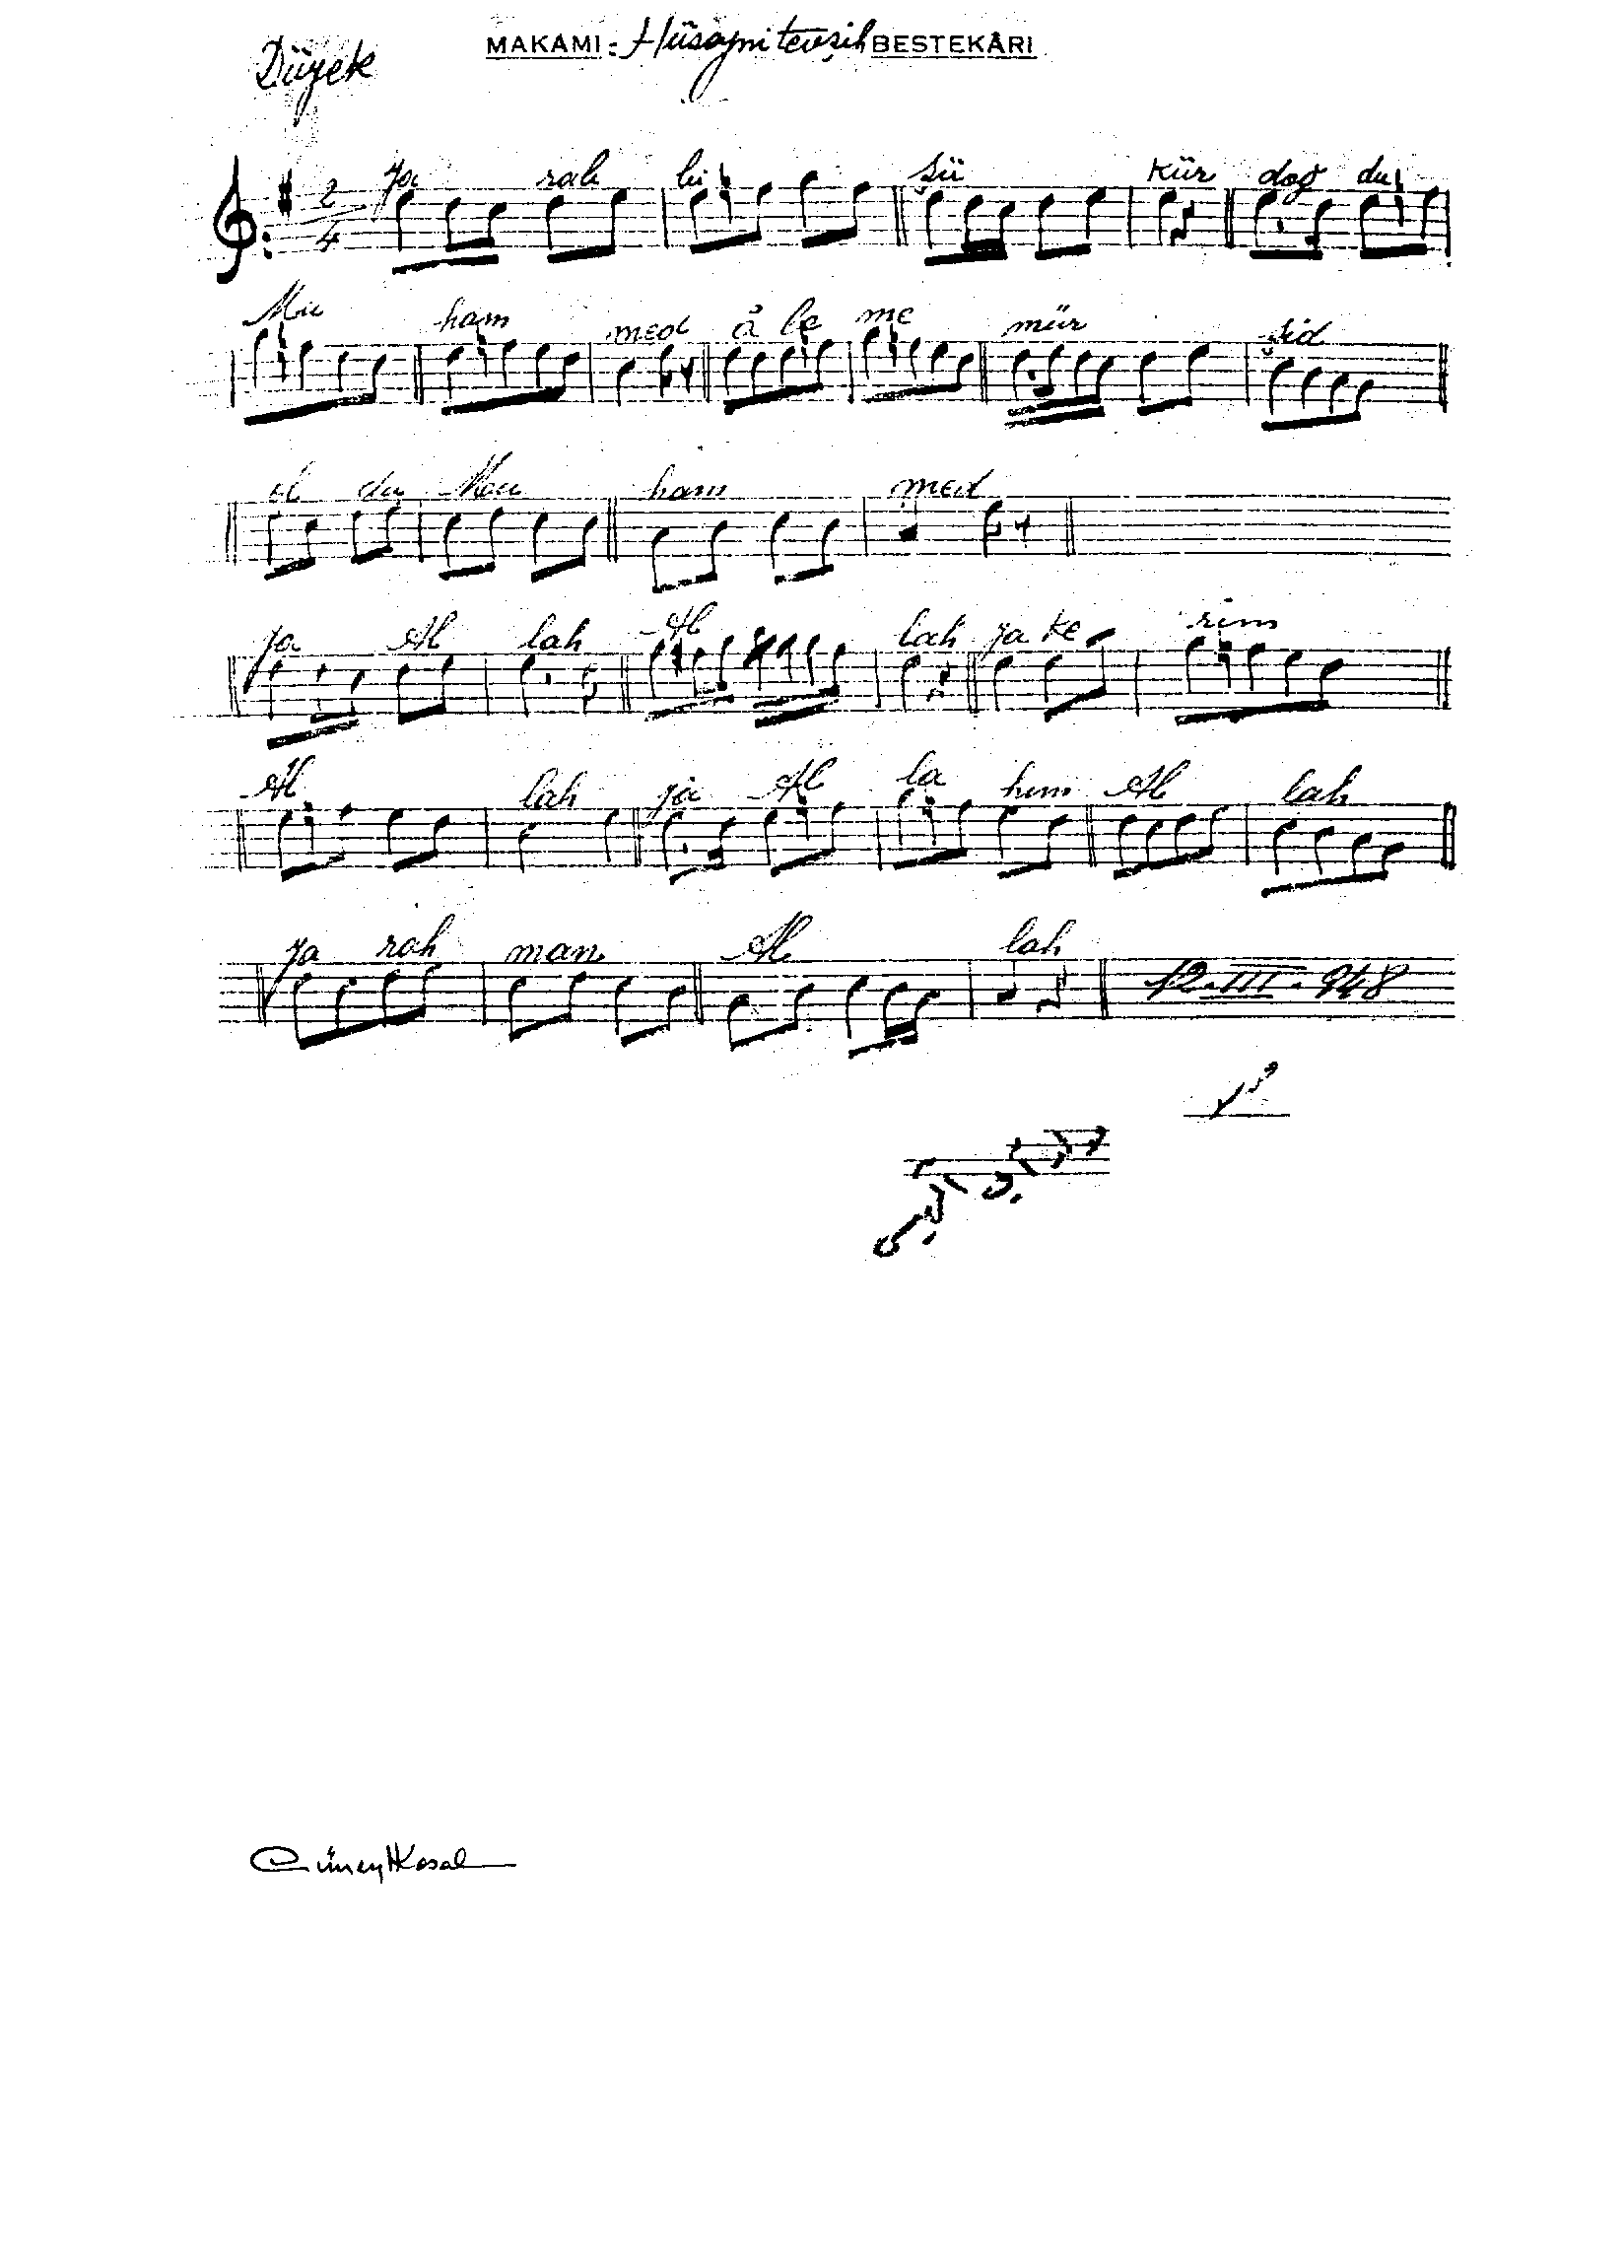 Düyek
MAKAMI : Hüseyni tevşih BESTEKÂRI
2/4
Ja rab bi şü kür doğ du
Mu ham med â le me mür şid
ol du Mu ham med
ja Al lah Al lah ja ke rim
Al lah ja Al la hım Al lah
ja rah man Al lah
12.III.948
Cüneyt Kosal